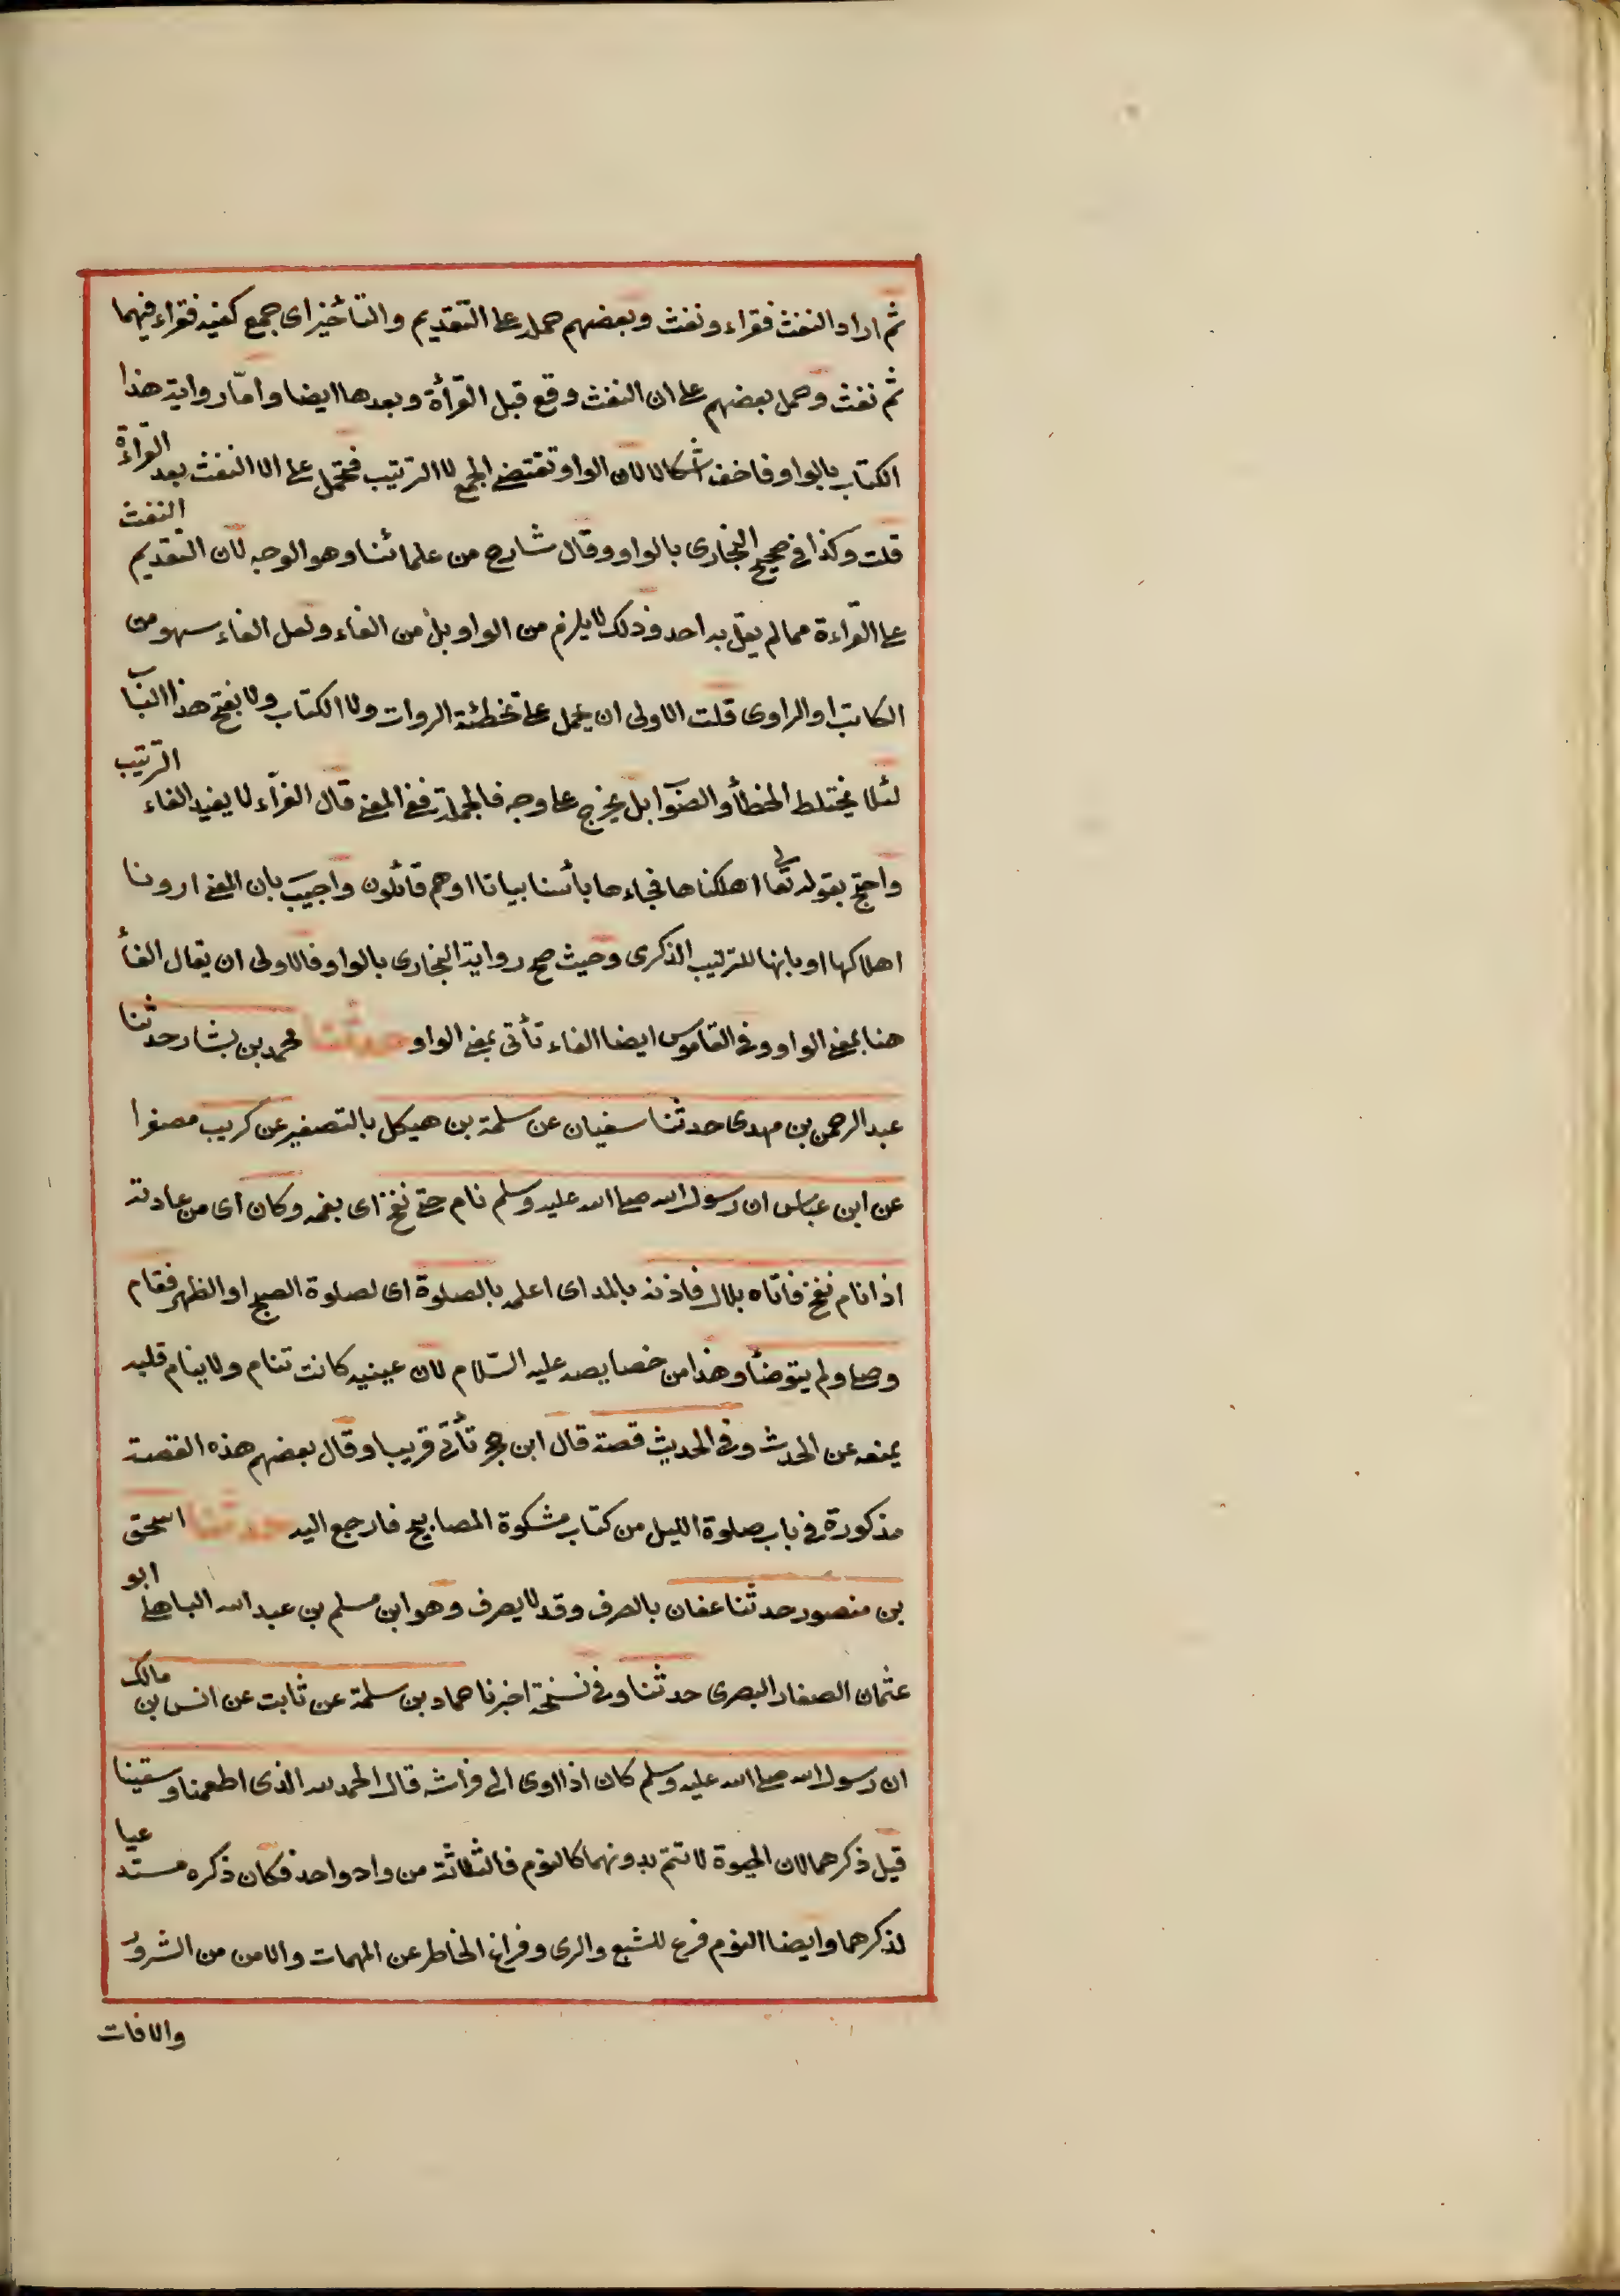 ثم اراد النفث فقراء ونفث وبعضهم حمله على التقديم والتأخير اى جمع كفيه فقراء فيهما
ثم نفث وحمل بعضهم على ان النفث وقع قبل القرأة وبعدها ايضا وامّا رواية هذا
الكتاب بالواو فاخف اشكالا لان الواو تقتضى الجمع لا الترتيب فيحمل على ان النفث بعد القراءة
قلت وكذا فى صحيح البخارى بالواو وقال شارح من علمائنا وهو الوجه لان التقديم النفث
على القراءة مما لم يقل به احد وذلك لا يلزم من الواو بل من الفاء ولعل الفاء سهو من
الكاتب او الراوى قلت الاولى ان يحمل على تخطئة الروات ولا الكتاب ولا يفتح هذا الباب
لئلا يختلط الخطأ والصواب بل يخرج على وجه فالجملة ففى المغنى قال الفراء لا يفيد الفاء الترتيب
واحتج بقوله تعالى اهلكناها فجاءها بأسنا بياتا او هم قائلون واجيب بان المعنى اردنا
اهلاكها او بانها للترتيب الذكرى وحيث صح رواية البخارى بالواو فالاولى ان يقال الفأ
هنا بمعنى الواو وفى القاموس ايضا الفاء تأتى بمعنى الواو حدثنا محمد بن بشار حدثنا
عبد الرحمن بن مهدى حدثنا سفيان عن سلمة بن هيكل بالتصغير عن كريب مصغرا
عن ابن عباس ان رسول الله صلى الله عليه وسلم نام حتى نفخ اى بفمه وكان اى من عادته
اذا نام نفخ فاتاه بلال فاذنه بالمد اى اعلمه بالصلوة اى لصلوة الصبح او الظهر فقام
وصلى ولم يتوضأ وهذا من خصايصه عليه السّلام لان عينيه كانت تنام ولا ينام قلبه
يمنعه عن الحدث وفى الحديث قصة قال ابن حجر تأتى قريبا وقال بعضهم هذه القصة
مذكورة فى باب صلوة الليل من كتاب مشكوة المصابيح فارجع اليه حدثنا اسحق
بن منصور حدثنا عفان بالصرف وقد لا يصرف وهو ابن مسلم بن عبد الله الباهلى ابو
عثمان الصفار البصرى حدثنا وفى نسخة اخبرنا حماد بن سلمة عن ثابت عن انس بن مالك
ان رسول الله صلى الله عليه وسلم كان اذا اوى الى فراشه قال الحمد لله الذى اطعمنا وسقينا
قيل ذكرهما لان الحيوة لا تتم بدونهما كالنوم فالثلاثة من واد واحد فكان ذكره مستدعيا
لذكرهما وايضا النوم فرع للشبع والرى وفراغ الخاطر عن المهمات والامن من الشرور
والافات